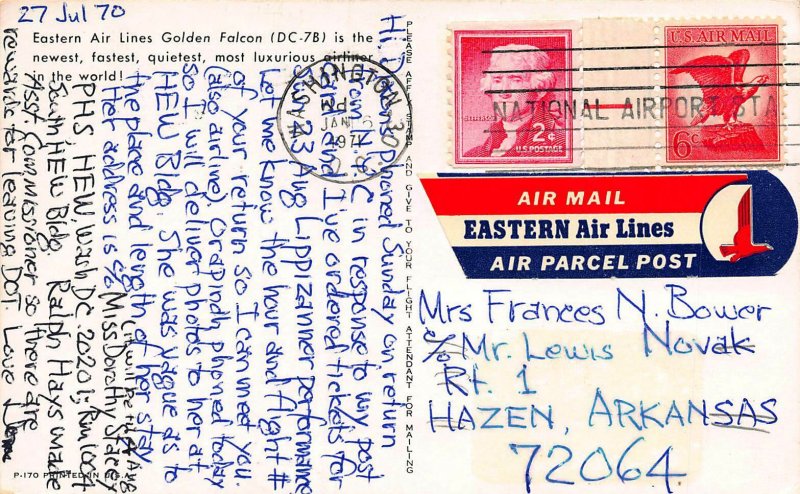 27 Jul 70
Eastern Air Lines Golden Falcon (DC-7B) is the
newest, fastest, quietest, most luxurious airliner
in the world!
Hi, I phoned Sunday on return
from NYC in response to my post
card and I've ordered tickets for
Sun. 23 Aug Lippizanner performance
Let me know the hour and flight #
of your return so I can meet you.
(also airline) Orapindh phoned today
so I will deliver photos to her at
HEW Bldg. She was vague as to
the place and length of her stay
Her address is c/o Miss Dorothy Stacey
PHS HEW Wash DC 20201; Rm 1004
South HEW Bldg. Ralph Hays made
Asst Commissioner so there are
rewards for leaving DOT Love
P-170 PRINTED IN U.S.A.
PLEASE AFFIX STAMP AND GIVE TO YOUR FLIGHT ATTENDANT FOR MAILING
WASHINGTON
PM
JAN
197
JEFFERSON
2¢
U.S. POSTAGE
U.S. AIR MAIL
6¢
NATIONAL AIRPORT STA
AIR MAIL
EASTERN Air Lines
AIR PARCEL POST
Mrs Frances N. Bower
c/o Mr. Lewis Novak
Rt. 1
HAZEN, ARKANSAS
72064